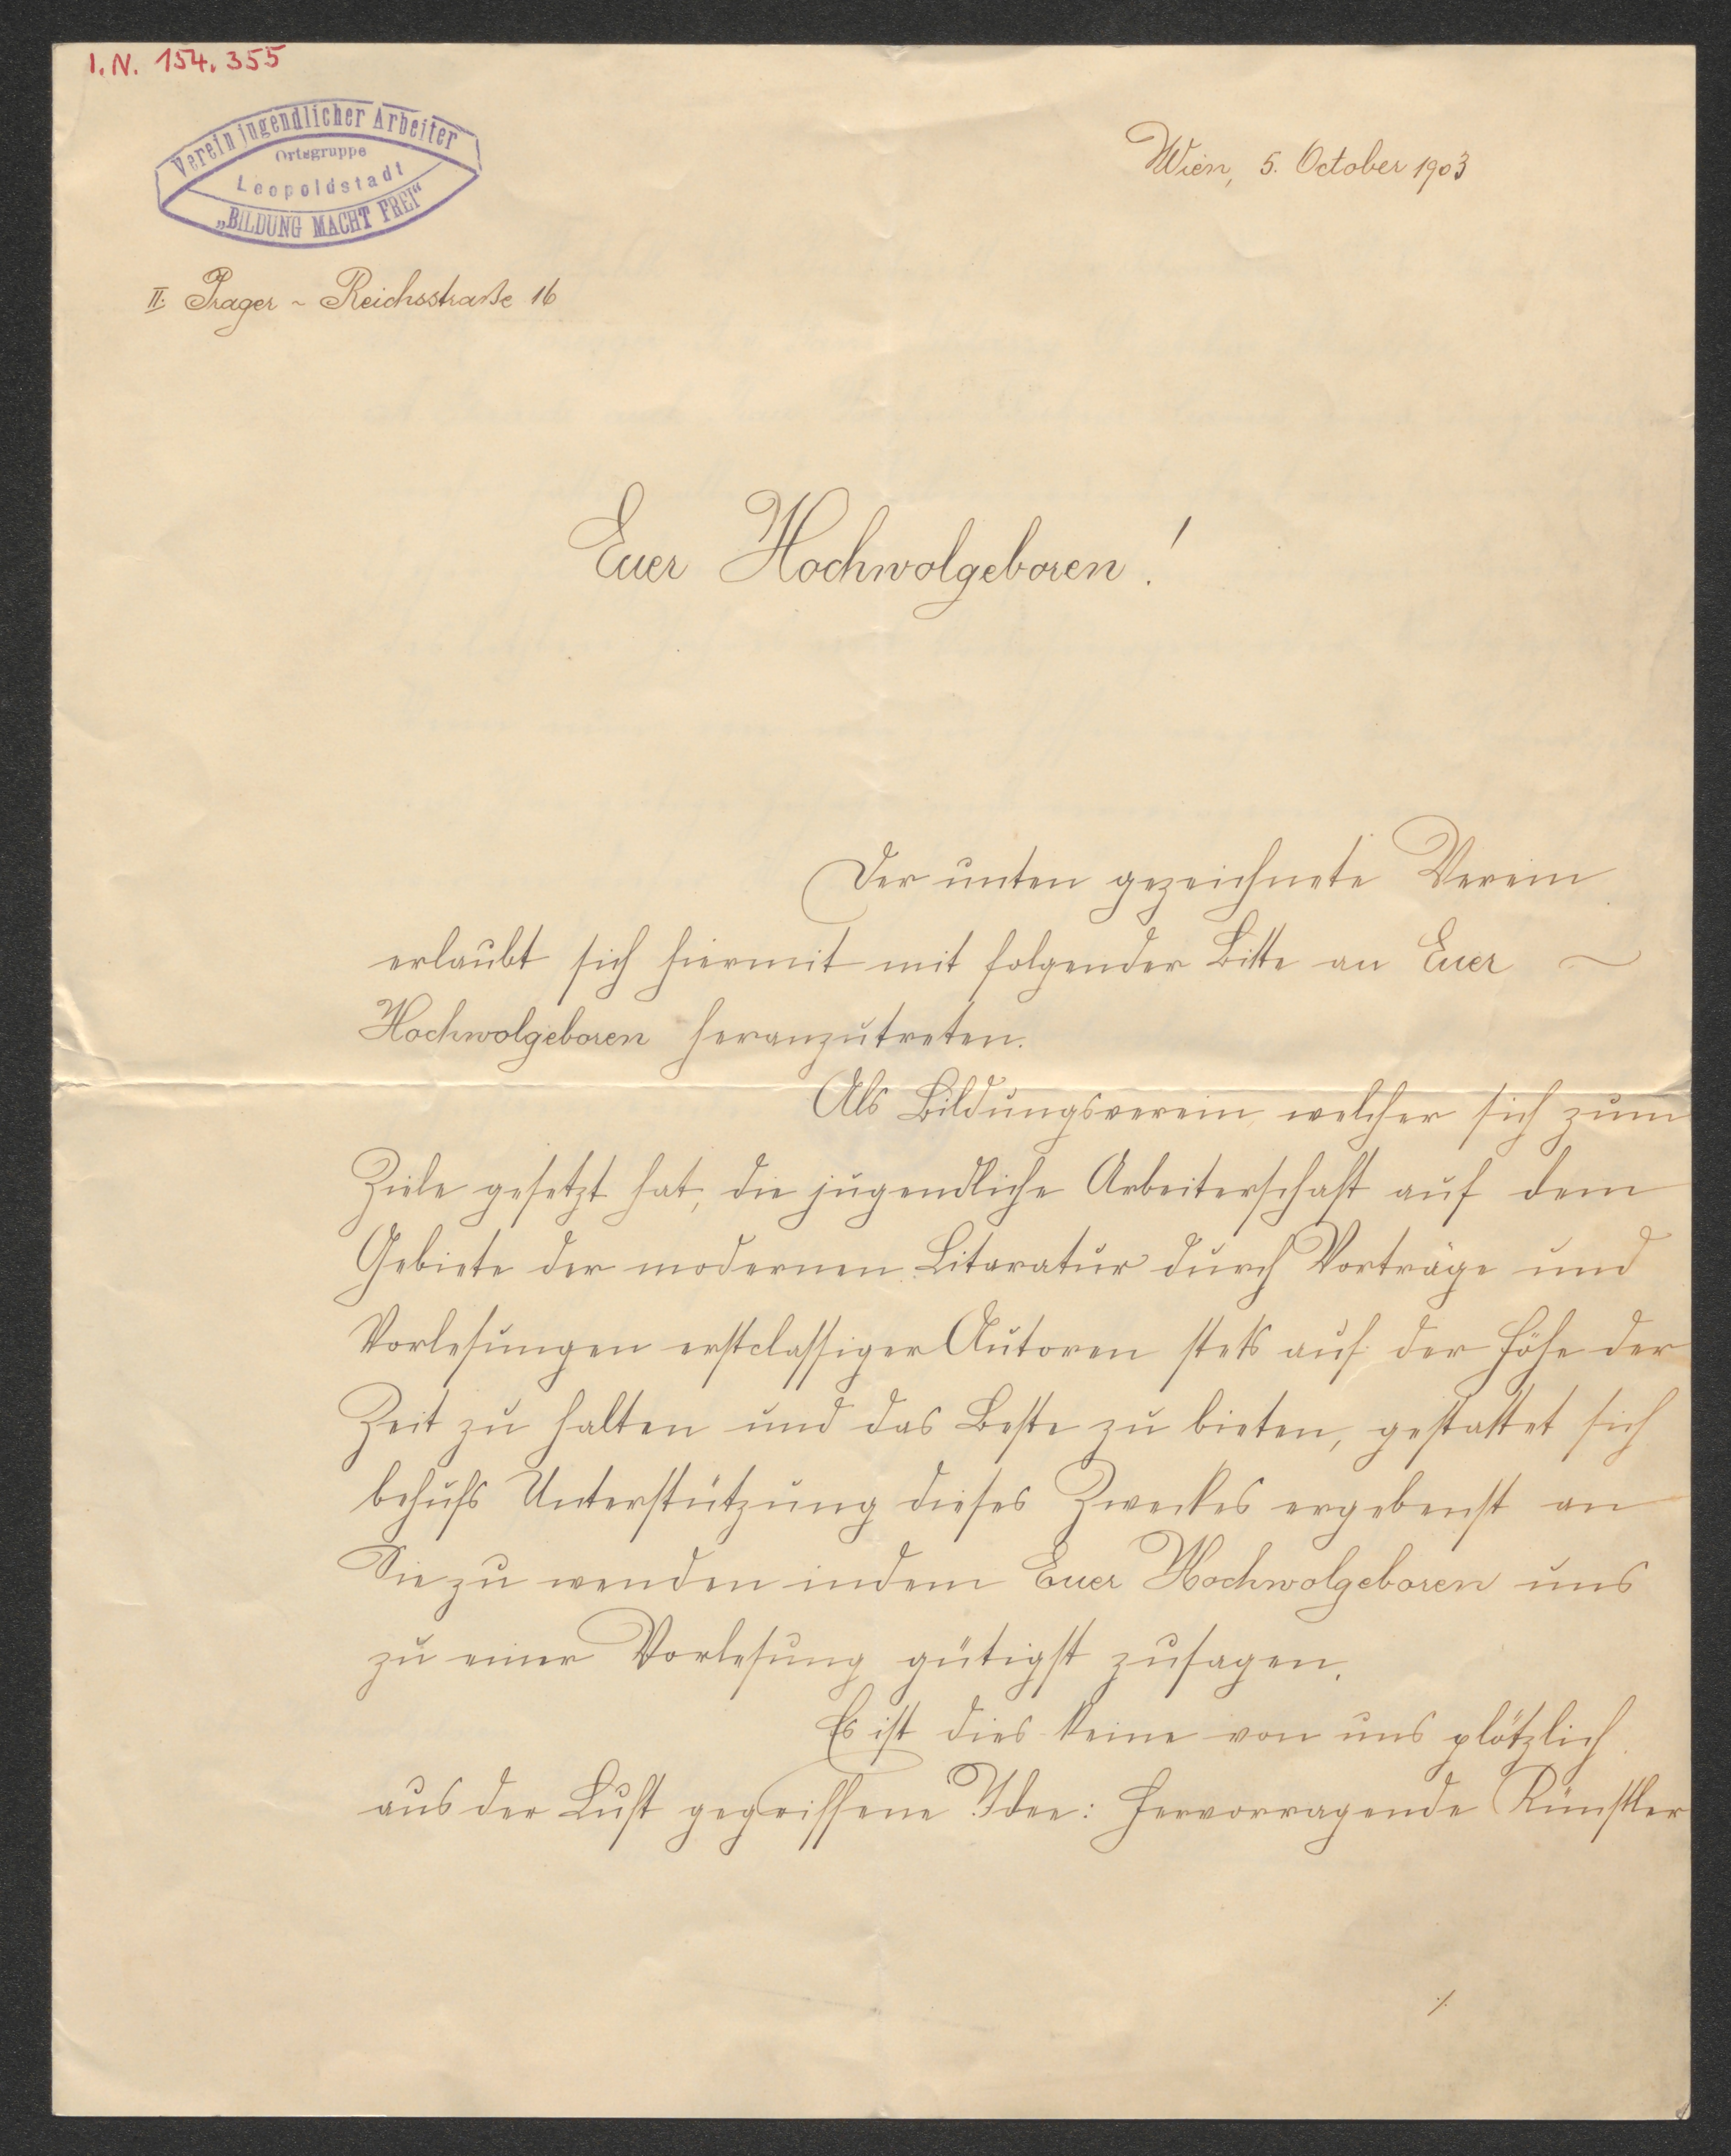 I. N. 154.355
Verein jugendlicher Arbeiter
Ortsgruppe
Leopoldstadt
„BILDUNG MACHT FREI“
Wien, 5. October 1903
II. Prager - Reichsstraße 16
Euer Hochwolgeboren!
Der unten gezeichnete Verein
erlaubt sich hiermit mit folgender Bitte an Euer ~
Hochwolgeboren heranzutreten.
Als Bildungsverein, welcher sich zum
Ziele gesetzt hat, die jugendliche Arbeiterschaft auf dem
Gebiete der modernen Litaratur durch Vorträge und
Vorlesungen erstclassiger Autoren stets auf der Höhe der
Zeit zu halten und das Beste zu bieten, gestattet sich
behufs Unterstützung dieses Zweckes ergebenst an
Sie zu wenden indem Euer Hochwolgeboren uns
zu einer Vorlesung gütigst zusagen.
Es ist dies keine von uns plötzlich
aus der Luft gegriffene Idee: hervorragende Künstler
./.